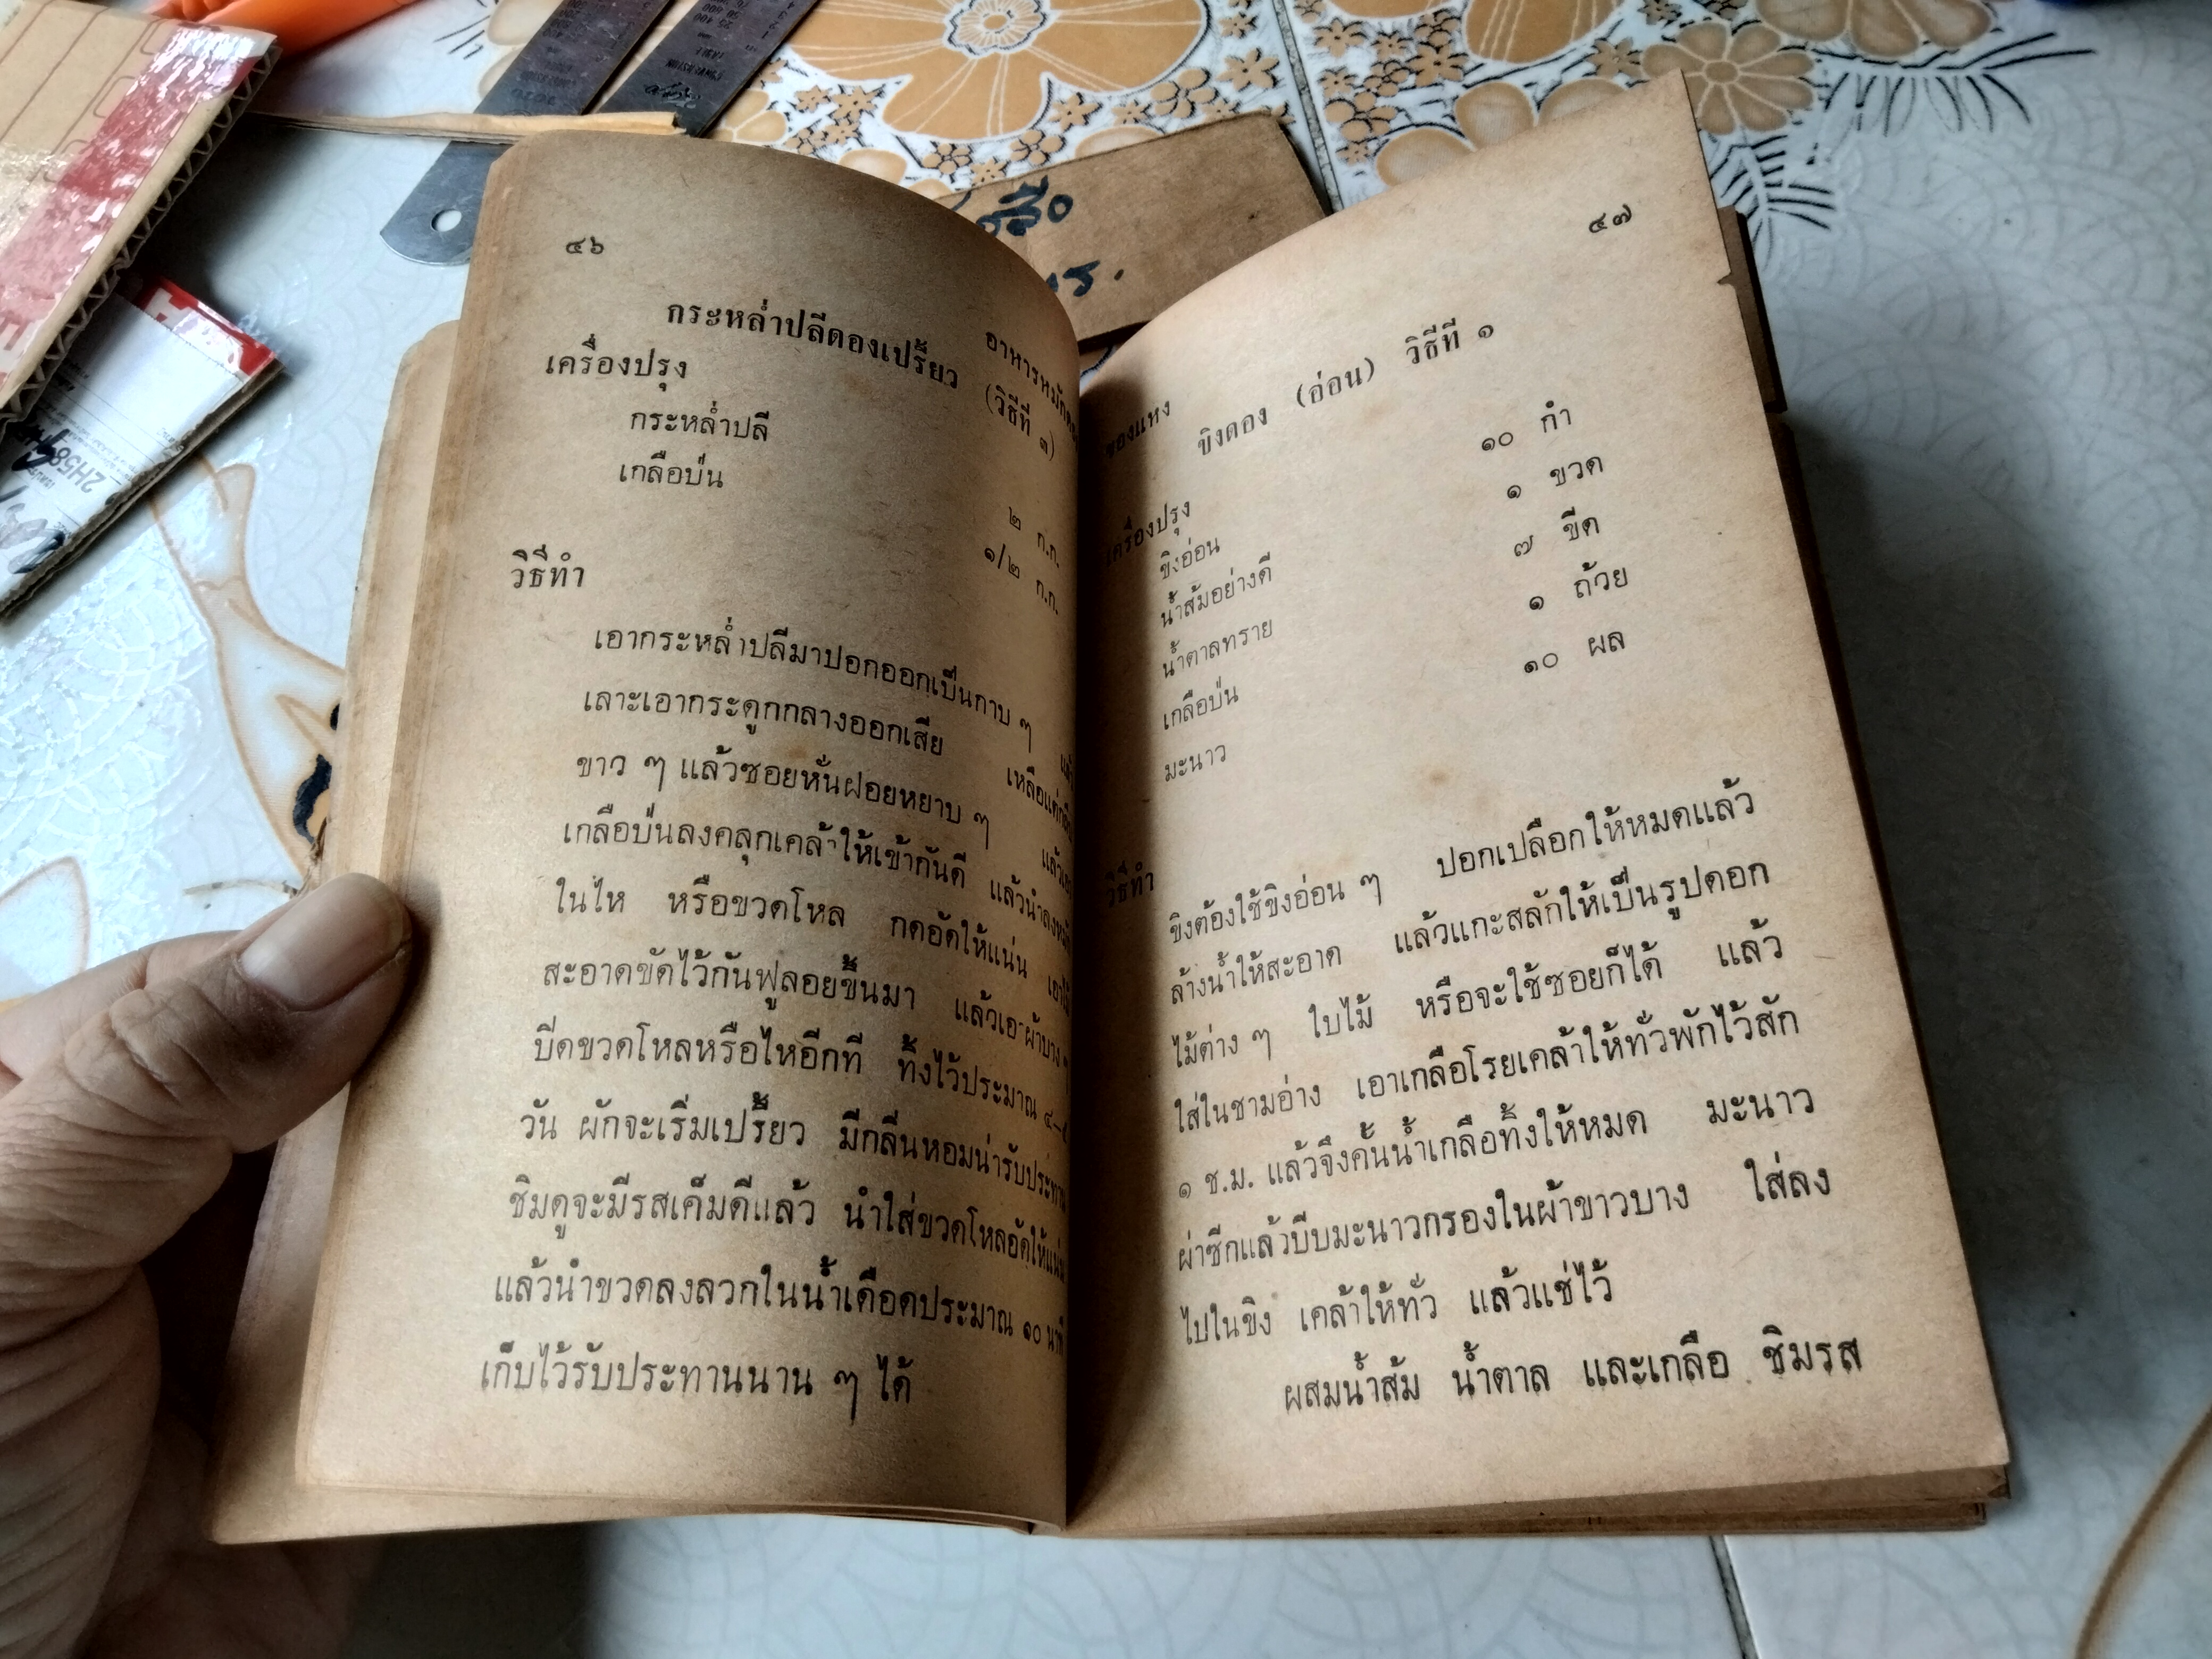 ๔๖
อาหารหมักดอง
กระหล่ำปลีดองเปรี้ยว (วิธีที่ ๓)
เครื่องปรุง
กระหล่ำปลี ๒ ก.ก.
เกลือป่น ๑/๒ ก.ก.
วิธีทำ
เอากระหล่ำปลีมาปอกออกเป็นกาบ ๆ แล้ว
เลาะเอากระดูกกลางออกเสีย
ขาว ๆ แล้วซอยหั่นฝอยหยาบ ๆ แล้วเอา
เกลือป่นลงคลุกเคล้าให้เข้ากันดี แล้วนำลง
ในไห หรือขวดโหล กดอัดให้แน่น
สะอาดขัดไว้กันฟูลอยขึ้นมา แล้วเอาผ้าบาง ๆ
ปิดขวดโหลหรือไหอีกที ทิ้งไว้ประมาณ ๔-๕
วัน ผักจะเริ่มเปรี้ยว มีกลิ่นหอมน่ารับประทาน
ชิมดูจะมีรสเค็มดีแล้ว นำใส่ขวดโหลอัดให้แน่น
แล้วนำขวดลงลวกในน้ำเดือดประมาณ ๑๐ นาที
เก็บไว้รับประทานนาน ๆ ได้
๔๗
ของแหง
ขิงดอง (อ่อน) วิธีที่ ๑
เครื่องปรุง
ขิงอ่อน ๑๐ กำ
น้ำส้มอย่างดี ๑ ขวด
น้ำตาลทราย ๗ ขีด
เกลือป่น ๑ ถ้วย
มะนาว ๑๐ ผล
วิธีทำ
ขิงต้องใช้ขิงอ่อน ๆ ปอกเปลือกให้หมดแล้ว
ล้างน้ำให้สะอาด แล้วแกะสลักให้เป็นรูปดอก
ไม้ต่าง ๆ ใบไม้ หรือจะใช้ซอยก็ได้ แล้ว
ใส่ในชามอ่าง เอาเกลือโรยเคล้าให้ทั่วพักไว้สัก
๑ ช.ม. แล้วจึงคั้นน้ำเกลือทิ้งให้หมด มะนาว
ผ่าซีกแล้วบีบมะนาวกรองในผ้าขาวบาง ใส่ลง
ไปในขิง เคล้าให้ทั่ว แล้วแช่ไว้
ผสมน้ำส้ม น้ำตาล และเกลือ ชิมรส
2H58